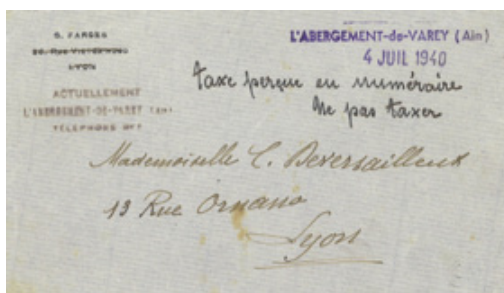 G. FARGES
20, Rue VICTOR HUGO
LYON
ACTUELLEMENT
L'ABERGEMENT-DE-VAREY (AIN)
TÉLÉPHONE
L'ABERGEMENT-de-VAREY (Ain)
4 JUIL 1940
taxe perçue en numéraire
Ne pas taxer
Mademoiselle C.
13 Rue Ornano
Lyon